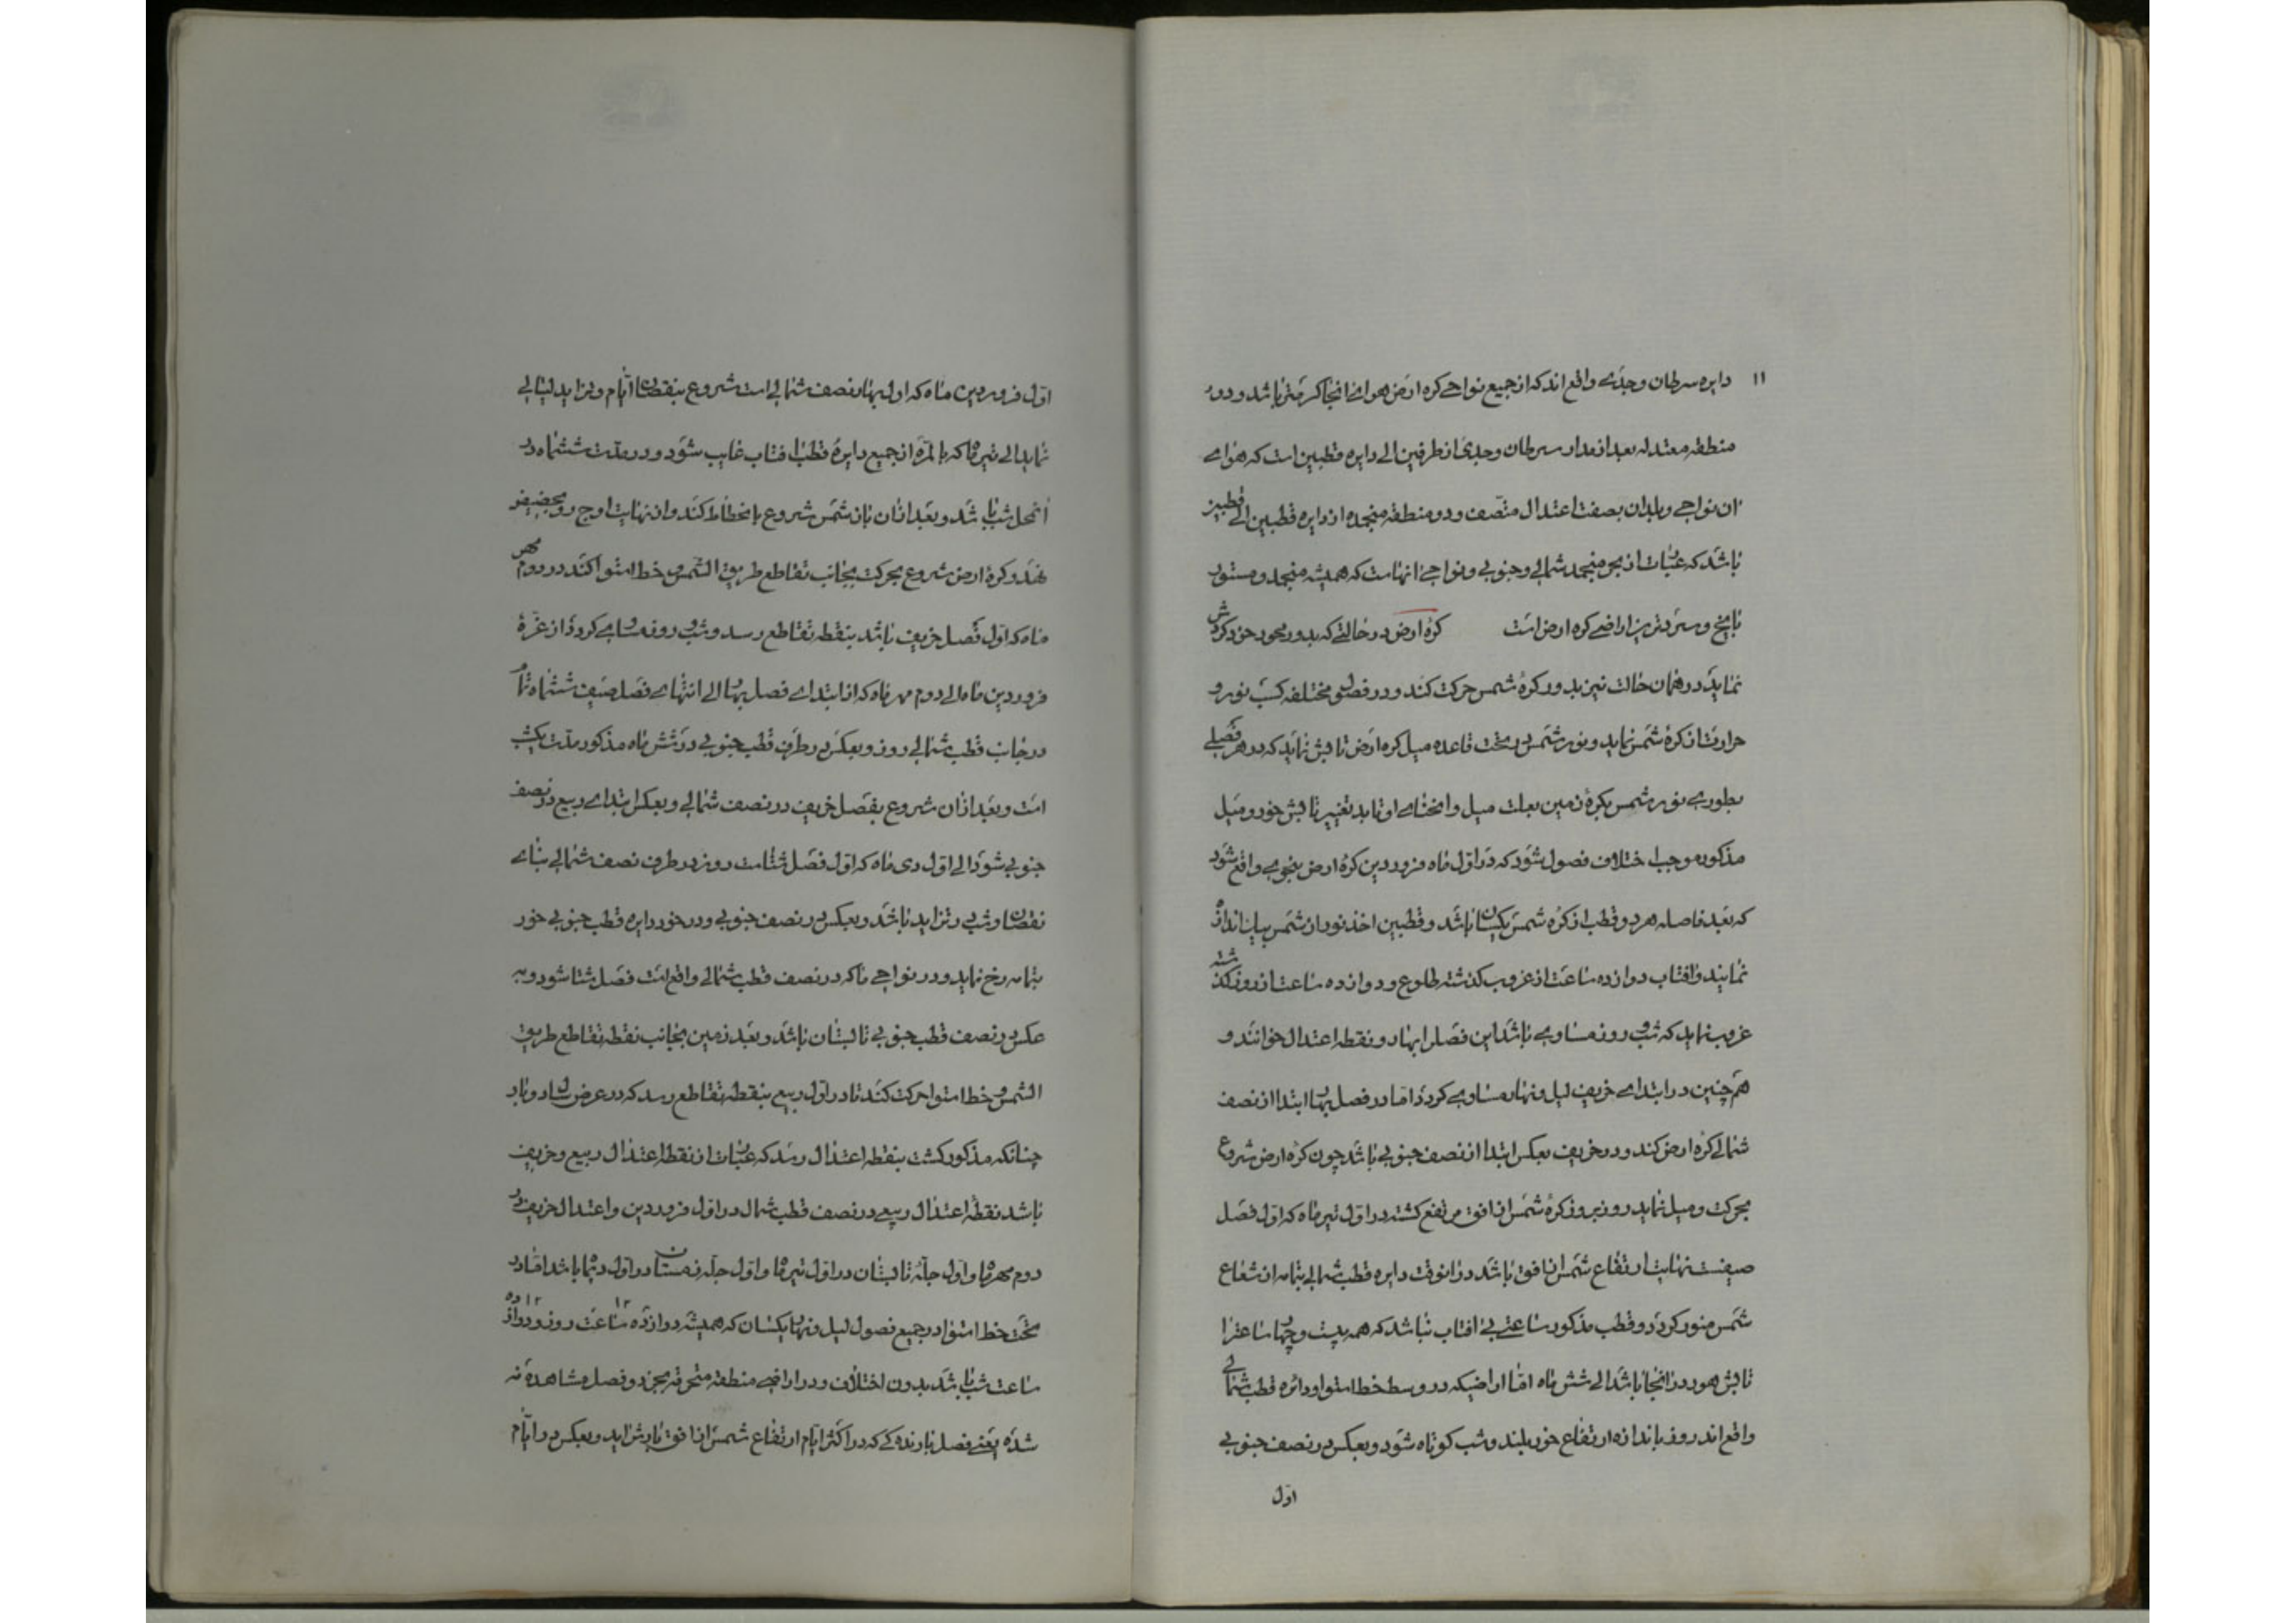 ۱۱ دایره سرطان وجدی واقع اند که از جمیع نواحی کره ارض هوای انجا کرمتر باشد و دور
منطقه معتدله بعد از مدار سرطان وجدی از طرفین الی دایره قطبین است که هوای
ان نواحی و بلدان بصفت اعتدال متصف و دو منطقه منجمده از دایره قطبین الی قطبین
باشد که عبارت از بحر منجمد شمالی و جنوبی و نواحی انهاست که همیشه منجمد و مستور
بایخ و سردترین اراضی کره ارض است کره ارض در حالتی که بدور محور خود کردش
نماید در همان حالت نیز بدور کرهٔ شمس حرکت کند و در فصول مختلفه کسب نور و
حرارت از کرهٔ شمس نماید و نور شمس در تحت قاعده میل کره ارض تابش نماید که در هر فصلی
بطوری نور شمس بکرهٔ زمین بعلت میل و انحنای او تابد تغییر تابش خور و میل
مذکوره موجب اختلاف فصول شود که در اول ماه فروردین کرهٔ ارض بنحوی واقع شود
که بعد فاصله هر دو قطب از کره شمس یکسان باشد و قطبین اخذ نور از شمس بیک اندازه
نمایند و افتاب دوازده ساعت از غروب کذشته طلوع و دوازده ساعت از روز کذشته
غروب نماید که شب و روز مساوی باشد این فصل را بهار و نقطه اعتدال خوانند و
هم چنین در ابتدای خریف لیل و نهار مساوی کردد اما در فصل بهار ابتدا از نصف
شمالی کرهٔ ارض کند و در خریف بعکس ابتدا از نصف جنوبی باشد چون کرهٔ ارض شروع
بحرکت و میل نماید روز بروز کرهٔ شمس از افق مرتفع کشته در اول تیر ماه که اول فصل
صیفست نهایت ارتفاع شمس از افق باشد در انوقت دایره قطب شمالی بتمامه از شعاع
شمس منور کردد و قطب مذکور ساعتی بی افتاب نباشد که همه بیست و چهار ساعت را
تابش هور در انجا باشد الی شش ماه اما اراضیکه در وسط خط استوا و دائره قطب شمالی
واقع اند روز باندازه ارتفاع خور بلند و شب کوتاه شود و بعکس در نصف جنوبی
اول
اول فروردین ماه که اول بهار نصف شمالی است شروع بنقصان ایام و تزاید لیالی
نماید الی تیر ماه که بالمره از جمیع دایره قطب افتاب غایب شود و در مدت ششماه در
انمحل شب باشد و بعد از ان باز شمس شروع بانحطاط کند و از نهایت اوج رو بحضیض
نهد و کرهٔ ارض شروع بحرکت بجانب تقاطع طریق الشمس و خط استوا کند در دوم مهر
ماه که اول فصل خریف باشد بنقطه تقاطع رسد و شب و روز مساوی کردد از غرهٔ
فروردین ماه الی دوم مهر ماه که از ابتدای فصل بهار الی انتهای فصل صیف ششماه تمام
در جانب قطب شمالی روز و بعکس در طرف قطب جنوبی در شش ماه مذکور مدت یکشب
است و بعد از ان شروع بفصل خریف در نصف شمالی و بعکس ابتدای ربیع در نصف
جنوبی شود الی اول دی ماه که اول فصل شتاست روز در طرف نصف شمالی بنای
نقصان و شب در تزاید باشد و بعکس در نصف جنوبی و در خور دایره قطب جنوبی خور
بتمامه رخ نماید و در نواحی ما که در نصف قطب شمالی واقع است فصل شتا شود و به
عکس در نصف قطب جنوبی تابستان باشد و بعد زمین بجانب نقطه تقاطع طریق
الشمس و خط استوا حرکت کند تا در اول ربیع بنقطه تقاطع رسد که در عرض سال دو بار
چنانکه مذکور کشت بنقطه اعتدال رسد که عبارت از نقطه اعتدال ربیع و خریف
باشد نقطه اعتدال ربیعی در نصف قطب شمال در اول فروردین و اعتدال خریف در
دوم مهر ماه و اول جله تابستان در اول تیر ماه و اول جله زمستان در اول دیماه باشد اما در
تحت خط استوا در جمیع فصول لیل و نهار یکسان که همیشه دوازده ۱۲ ساعت روز و دوازده ۱۲
ساعت شب باشد بدون اختلاف و در اراضی منطقه محترقه بجز دو فصل مشاهده نه
شده یعنی فصل بارنده کی که در اکثر ایام ارتفاع شمس از افق بارش اید و بعکس در ایام